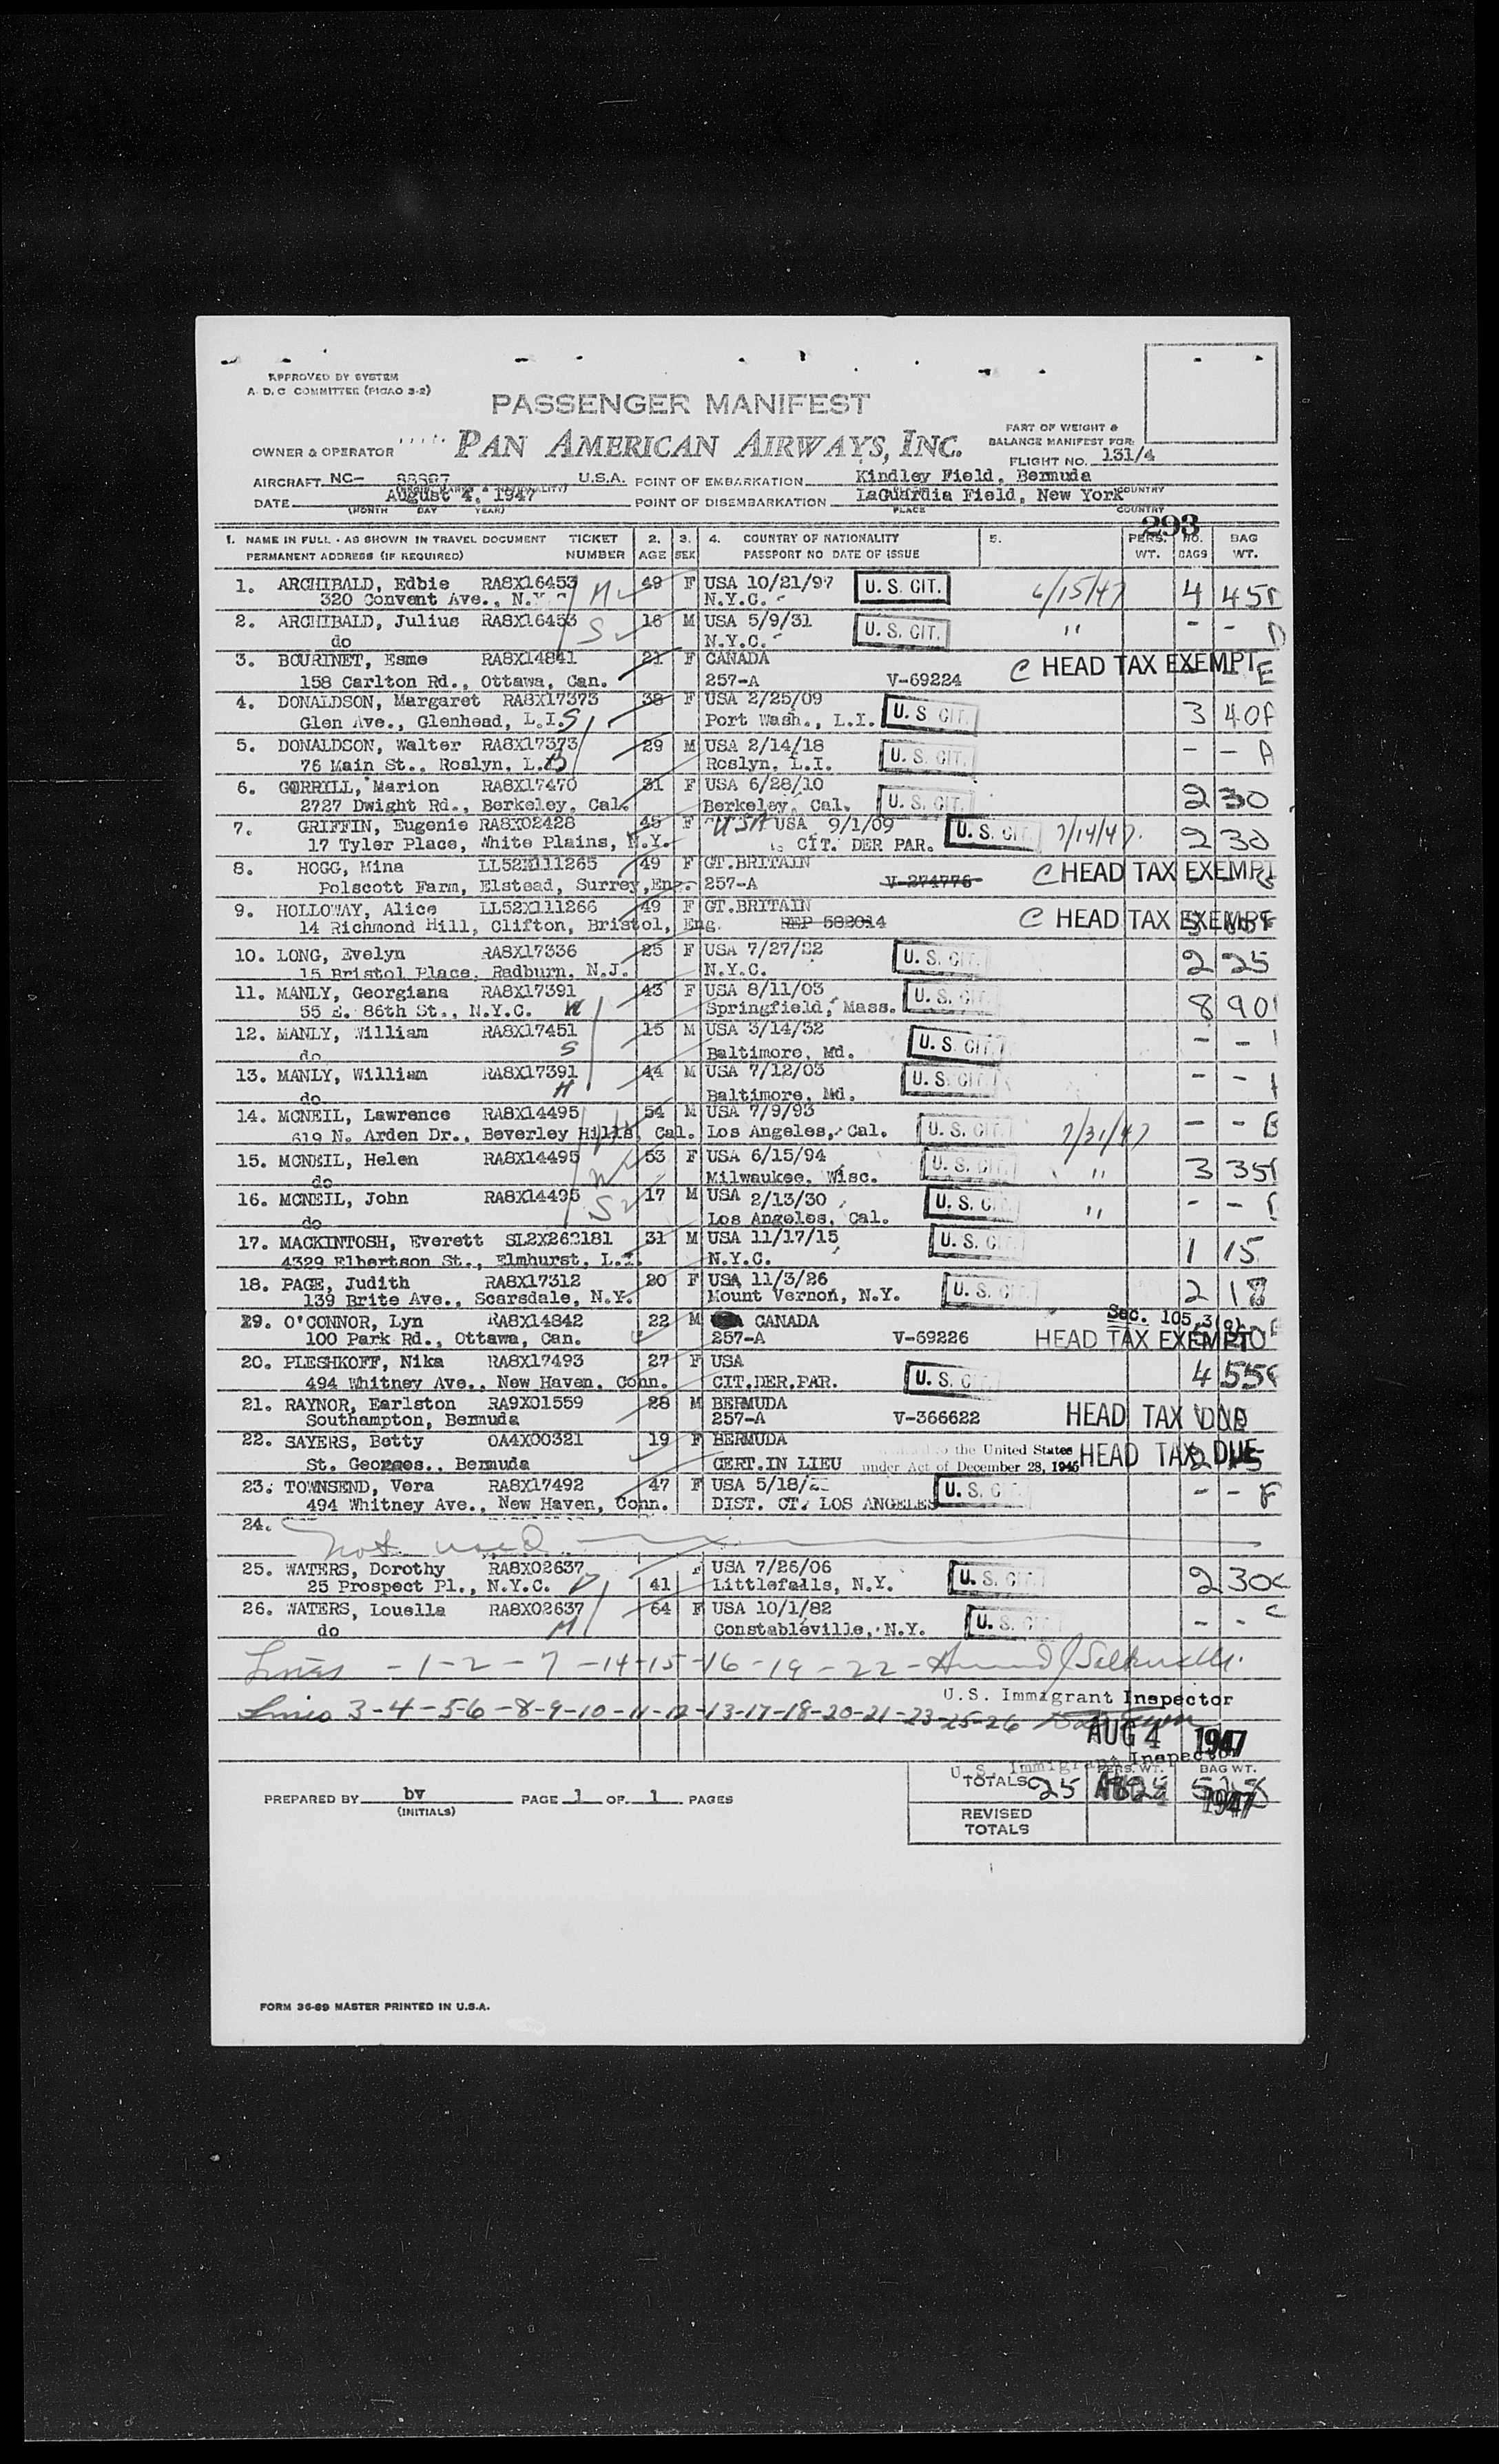 APPROVED BY SYSTEM
A.D.C COMMITTEE (PICAO 3-2)
PASSENGER MANIFEST
PART OF WEIGHT &
BALANCE MANIFEST FOR:
OWNER & OPERATOR PAN AMERICAN AIRWAYS, INC.
FLIGHT NO. 131/4
AIRCRAFT NC- U.S.A. POINT OF EMBARKATION Kindley Field, Bermuda
DATE August 4, 1947 POINT OF DISEMBARKATION LaGuardia Field, New York COUNTRY
(MONTH DAY YEAR) PLACE COUNTRY
293
1. NAME IN FULL - AS SHOWN IN TRAVEL DOCUMENT TICKET 2. 3. 4. COUNTRY OF NATIONALITY 5. PERS. NO. BAG
PERMANENT ADDRESS (IF REQUIRED) NUMBER AGE SEX PASSPORT NO DATE OF ISSUE WT. BAGS WT.
1. ARCHIBALD, Edbie RA8X16453 49 F USA 10/21/97 U.S. CIT. 6/15/47 4 45
320 Convent Ave., N.Y.C. N.Y.C.
2. ARCHIBALD, Julius RA8X16453 S 16 M USA 5/9/31 U.S. CIT. " - - D
do N.Y.C.
3. BOURINET, Esme RA8X14841 21 F CANADA C HEAD TAX EXEMPT E
158 Carlton Rd., Ottawa, Can. 257-A V-69224
4. DONALDSON, Margaret RA8X17373 38 F USA 2/25/09 U.S. CIT. 3 40
Glen Ave., Glenhead, L.I. S Port Wash., L.I.
5. DONALDSON, Walter RA8X17373 29 M USA 2/14/18 U.S. CIT. - - A
76 Main St., Roslyn, L.I. Roslyn, L.I.
6. GORRILL, Marion RA8X17470 31 F USA 6/28/10 U.S. CIT. 2 30
2727 Dwight Rd., Berkeley, Cal. Berkeley, Cal.
7. GRIFFIN, Eugenie RA8X02428 45 F USA USA 9/1/09 U.S. CIT. 7/14/47. 2 30
17 Tyler Place, White Plains, N.Y. CIT. DER PAR.
8. HOGG, Mina LL52X111265 49 F GT.BRITAIN C HEAD TAX EXEMPT
Polscott Farm, Elstead, Surrey, Eng. 257-A V-274776
9. HOLLOWAY, Alice LL52X111266 49 F GT.BRITAIN C HEAD TAX EXEMPT
14 Richmond Hill, Clifton, Bristol, Eng. REP 582014
10. LONG, Evelyn RA8X17336 25 F USA 7/27/22 U.S. CIT. 2 25
15 Bristol Place, Radburn, N.J. N.Y.C.
11. MANLY, Georgiana RA8X17391 43 F USA 8/11/03 U.S. CIT. 8 90
55 E. 86th St., N.Y.C. Springfield, Mass.
12. MANLY, William RA8X17451 15 M USA 3/14/32 U.S. CIT. - -
do S Baltimore, Md.
13. MANLY, William RA8X17391 44 M USA 7/12/03 U.S. CIT. - -
do H Baltimore, Md.
14. MCNEIL, Lawrence RA8X14495 54 M USA 7/9/93 U.S. CIT. 7/31/47 - -
619 N. Arden Dr., Beverley Hills, Cal. Los Angeles, Cal.
15. MCNEIL, Helen RA8X14495 W 53 F USA 6/15/94 U.S. CIT. " 3 35
do Milwaukee, Wisc.
16. MCNEIL, John RA8X14495 S 17 M USA 2/13/30 U.S. CIT. " - -
do Los Angeles, Cal.
17. MACKINTOSH, Everett SL2X262181 31 M USA 11/17/15 U.S. CIT. 1 15
4329 Elbertson St., Elmhurst, L.I. N.Y.C.
18. PAGE, Judith RA8X17312 20 F USA 11/3/26 U.S. CIT. 2 18
139 Brite Ave., Scarsdale, N.Y. Mount Vernon, N.Y.
19. O'CONNOR, Lyn RA8X14842 22 M CANADA Sec. 105.3(c)
100 Park Rd., Ottawa, Can. 257-A V-69226 HEAD TAX EXEMPT
20. PLESHKOFF, Nika RA8X17493 27 F USA U.S. CIT. 4 55
494 Whitney Ave., New Haven, Conn. CIT.DER.PAR.
21. RAYNOR, Earlston RA9X01559 28 M BERMUDA HEAD TAX DUE
Southampton, Bermuda 257-A V-366622
22. SAYERS, Betty OA4X00321 19 F BERMUDA to the United States HEAD TAX DUE
St. Georges., Bermuda CERT.IN LIEU under Act of December 28, 1945
23. TOWNSEND, Vera RA8X17492 47 F USA 5/18/ U.S. CIT. - - F
494 Whitney Ave., New Haven, Conn. DIST. CT. LOS ANGELES
24. not used
25. WATERS, Dorothy RA8X02637 41 USA 7/26/06 U.S. CIT. 2 30
25 Prospect Pl., N.Y.C. Littlefalls, N.Y.
26. WATERS, Louella RA8X02637 64 F USA 10/1/82 U.S. CIT. - -
do M Constableville, N.Y.
Lines - 1 - 2 - 7 - 14 - 15 - 16 - 19 - 22 -
U.S. Immigrant Inspector
Lines 3-4-5-6-8-9-10-11-12-13-17-18-20-21-23-25-26
AUG 4 1947
U.S. Immigrant Inspector
TOTALS 25 PERS. WT. BAG WT.
1947
PREPARED BY bv PAGE 1 OF 1 PAGES
(INITIALS)
REVISED
TOTALS
FORM 36-69 MASTER PRINTED IN U.S.A.